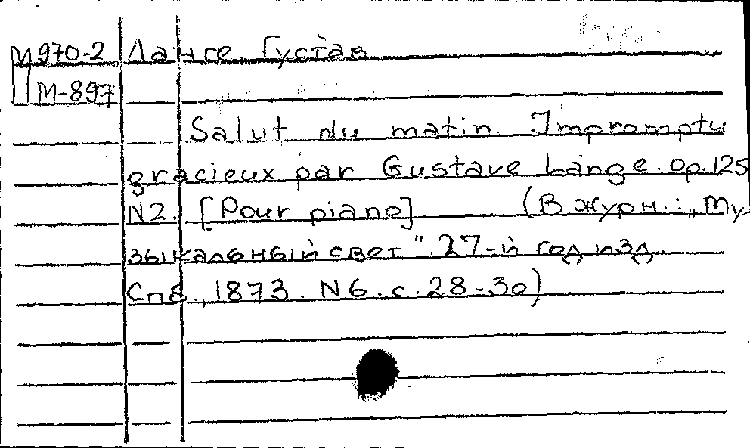 М970-2 Ланге, Густав
М-897
Salut du matin. Impromptu
gracieux par Gustave Lange. op.125
N2. [Pour piano] (В журн.: „Му-
зыкальный свет". 27-й год изд.
Спб., 1873. N6. с. 28-30)